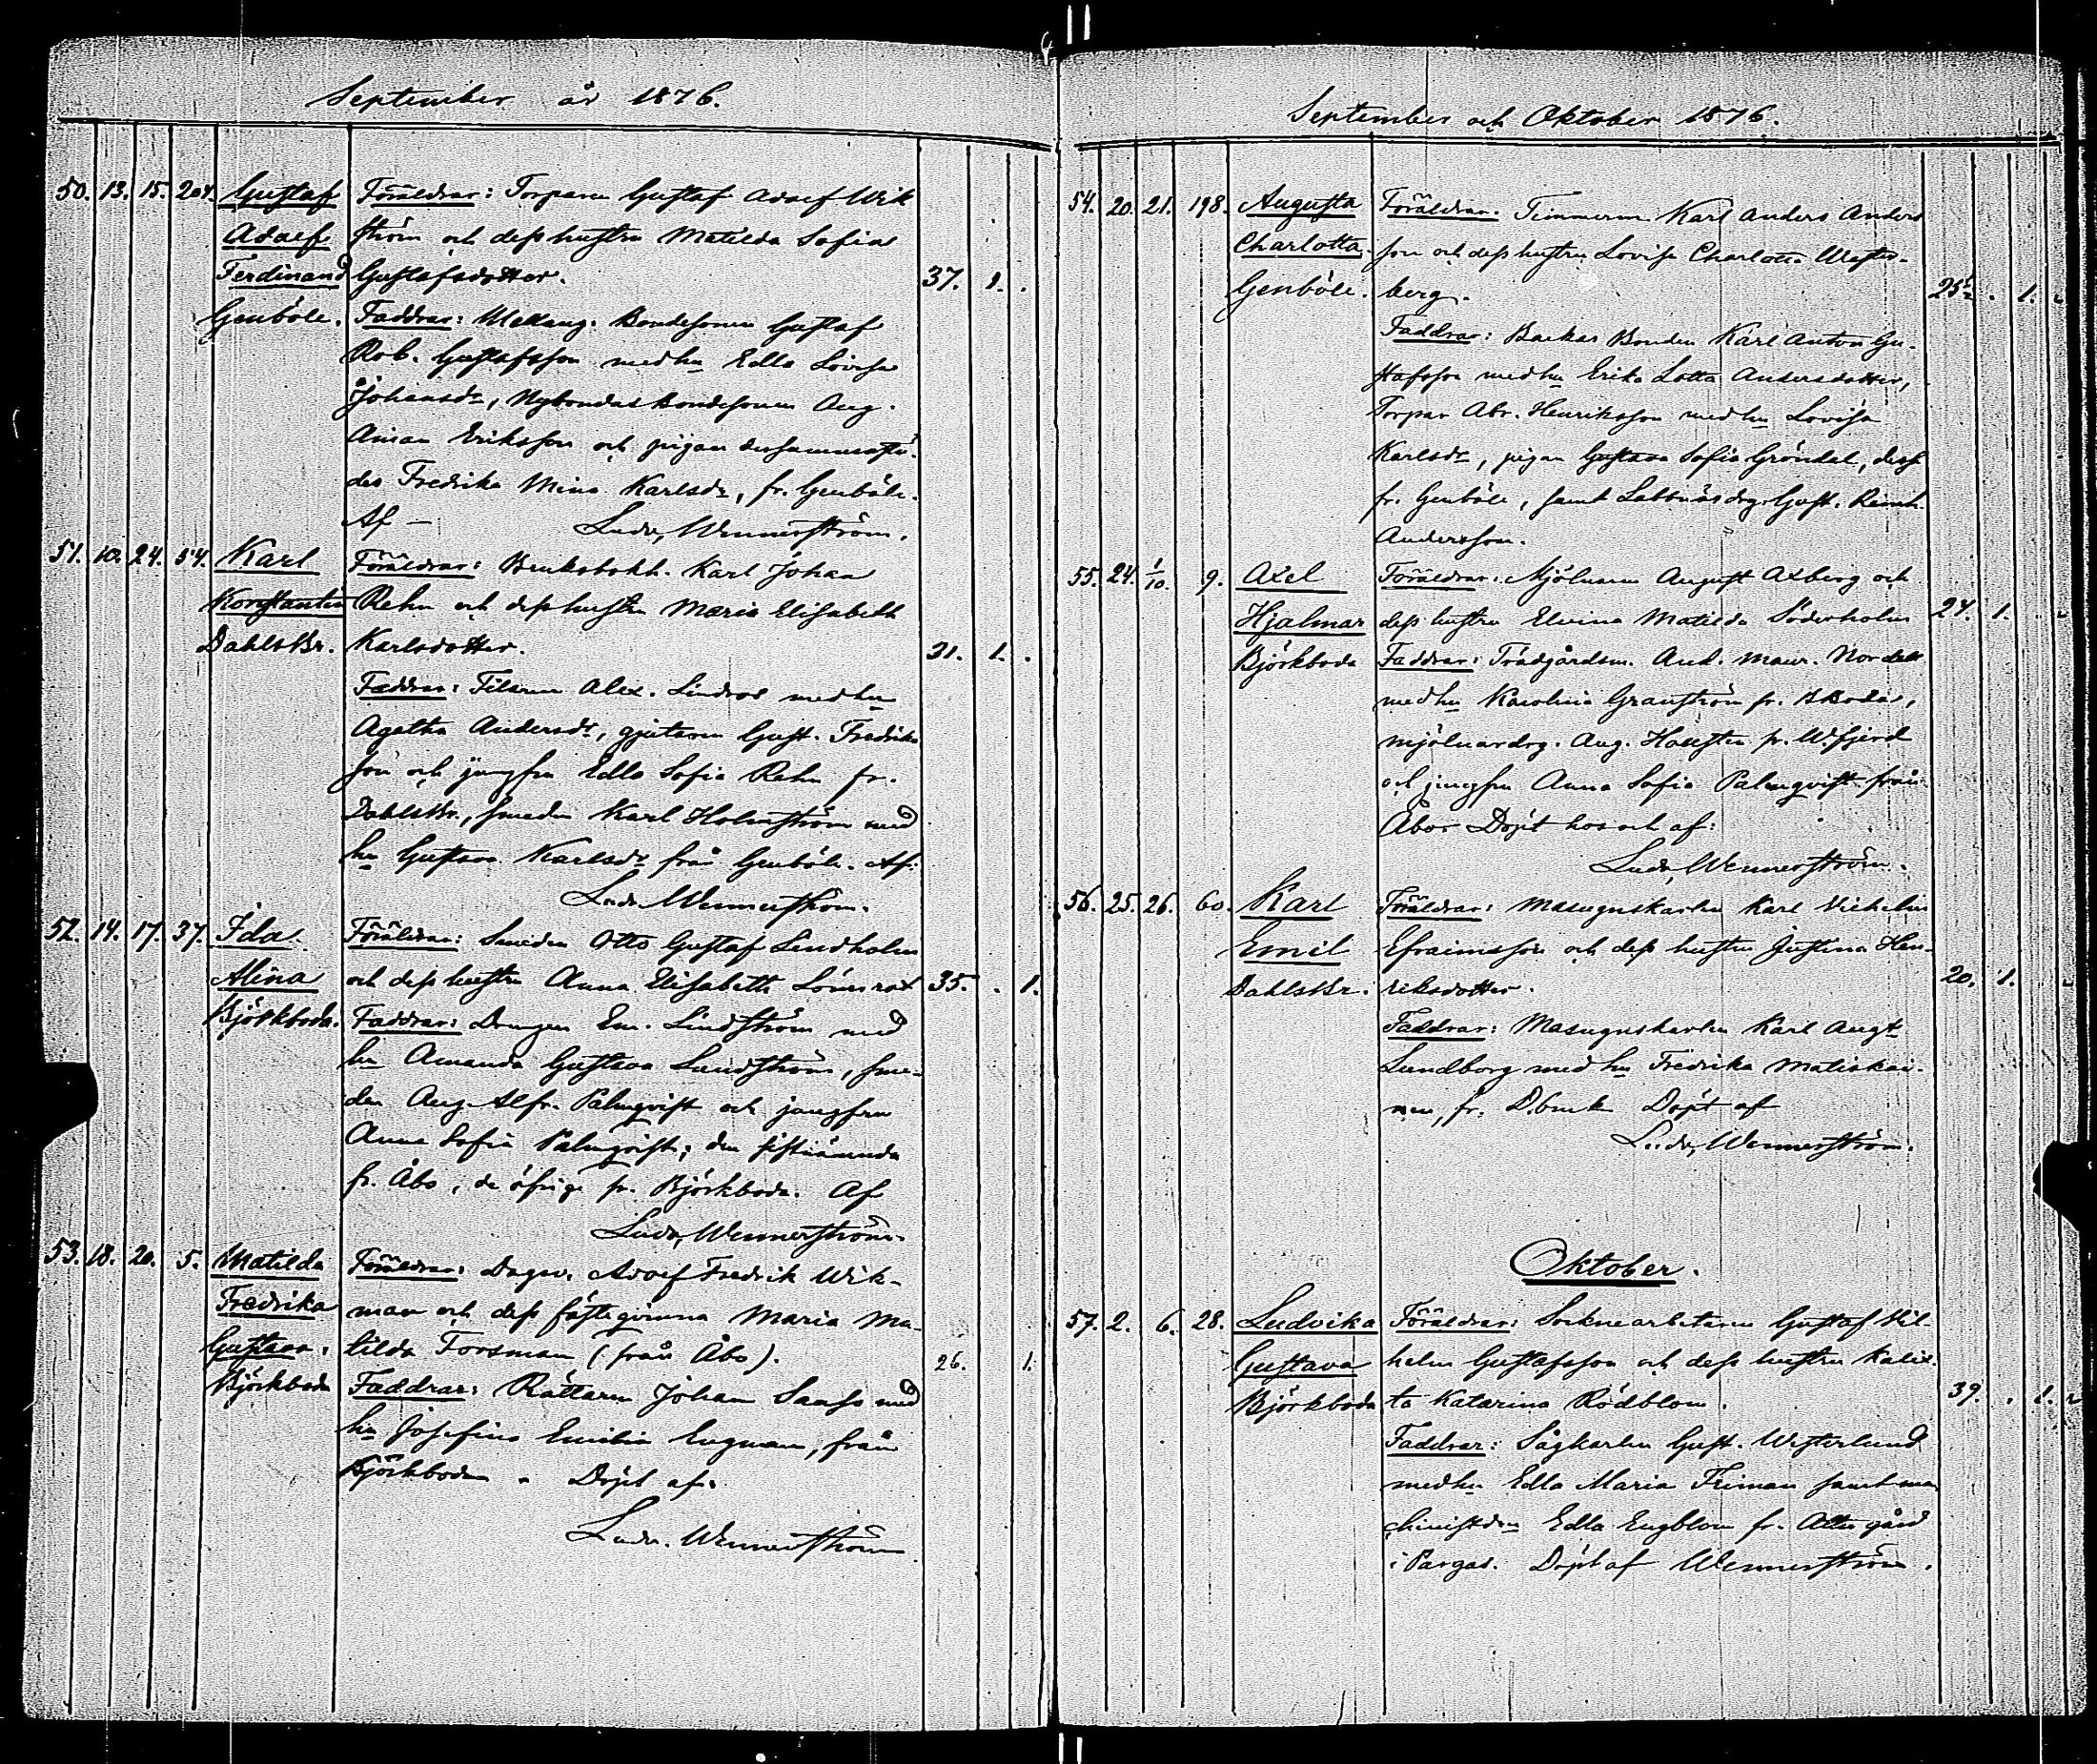 September år 1876.
50. 13. 15. 204. Gustaf Föräldrar: Torparen Gustaf Adolf Wik
Adolf ström och dess hustru Matilda Sofia
Ferdinand Gustafsdotter. 37. 1. .
Genböle. Faddrar: Mellang. Bondesonen Gustaf
Rob. Gustafsson med hu Edla Lovisa
Johansdr, Nybondas Bondesonen Aug.
Eriksson och pigan dersammastä-
des Fredrika Mina Karlsdr, fr. Genböle.
Af — Ludv. Wennerström.
51. 10. 24. 54. Karl Föräldrar: Bruksbokh. Karl Johan
Konstantin Rehn och dess hustru Maria Elisabeth
DahlsBr. Karlsdotter. 31. 1. .
Faddrar: Filaren Alex. Lindros med hu
Agatha Andersdr, gjutaren Gust. Fredriks
son och jungfru Edla Sofia Rehn fr.
DahlsBr., smeden Karl Holmström med
hu Gustava Karlsdr från Genböle. Af:
Ludv. Wennerström.
52. 14. 17. 37. Ida Föräldrar: Smeden Otto Gustaf Lindholm
Alina och dess hustru Anna Elisabeth Lönnrot 35. . 1.
Björkboda. Faddrar: Drengen Em. Lindström med
hu Amanda Gustava Lindström, sme-
den Aug. Alfr. Palmqvist och jungfru
Anna Sofia Palmqvist; den sistnämnda
fr. Åbo, de öfriga fr. Björkboda. Af
Ludv. Wennerström.
53. 18. 20. 5. Matilda Föräldrar: Dagsv. Adolf Fredrik Wik-
Fredrika man och dess fästeqvinna Maria Ma-
Gustava. tilda Forsman (från Åbo). 26. 1.
Björkboda Faddrar: Rättaren Johan med
hu Josefina Emilia Engman, från
Björkboda. Döpt af.
Ludv. Wennerström
September och Oktober 1876.
54. 20. 21. 198. Augusta Föräldrar: Timmerm. Karl Anders Anders
Charlotta. son och dess hustru Lovisa Charlotta Wester-
Genböle. berg. . 1.
Faddrar: Backas Bonden Karl Anton Gu-
stafsson med hu Erika Lotta Andersdotter,
Torpar Abr. Henriksson med hu Lovisa
Karlsdr, pigan Gustava Sofia Gröndal, dessa
fr. Genböle, samt Labbnäs drg. Gust. Reinh.
Andersson.
55. 24. 1/10. 9. Axel Föräldrar: Mjölnaren August Axberg och
Hjalmar dess hustru Elvina Matilda Söderholm 24. 1.
Björkboda Faddrar: Trädgårdsm. And. Maur. Nordell
med hu Karolina Granström fr. BBoda,
mjölnardrg. Aug. fr. W.fjerd
och jungfru Anna Sofia Palmqvist från
Åbo. Döpt hos och af:
Ludv. Wennerström.
56. 25. 26. 60. Karl Föräldrar: Masugnskarlen Karl Vilhelm
Emil Efraimsson och dess hustru Justina Hen-
DahlsBr. riksdotter. 20. 1.
Faddrar: Masugnskarlen Karl Augt
Lundborg med hu Fredrika Matiskai-
nen, fr. D.bruk Döpt af
Ludv. Wennerström.
Oktober.
57. 2. 6. 28. Ludvika Föräldrar: Socknearbetaren Gustaf Vil
Gustava helm Gustafsson och dess hustru Kalix-
Björkboda ta Katarina Rödblom. 39. . 1.
Faddrar: Sågkarlen Gust. Westerlund
med hu Edla Maria Friman samt ma-
Edla Engblom fr. gård
i Pargas. Döpt af Wennerström.